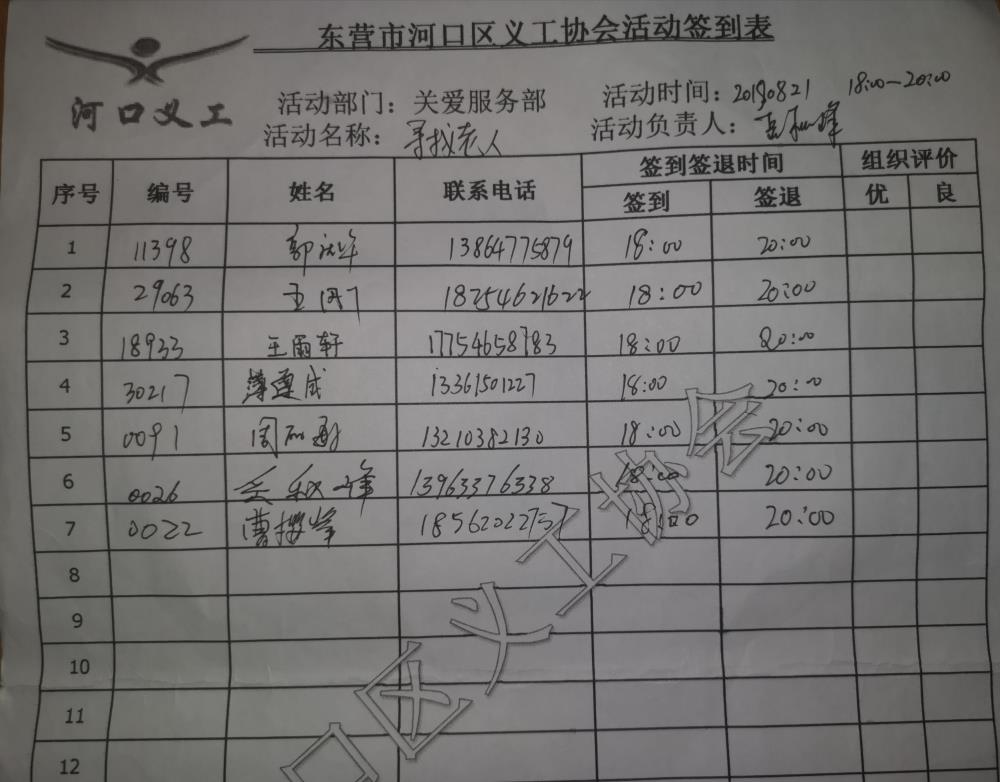 东营市河口区义工协会活动签到表
河口义工
活动部门：关爱服务部 活动时间：20190821 18:00—20:00
活动名称：寻找老人 活动负责人：
序号 编号 姓名 联系电话 签到签退时间 组织评价
签到 签退 优 良
1 11398 13864775879 18:00 20:00
2 29063 18754621622 18:00 20:00
3 18933 王雨轩 17754658783 18:00 20:00
4 30217 13361501227 18:00 20:00
5 0091 13210382130 18:00 20:00
6 0026 13963376338 18:00 20:00
7 0022 18562022757 18:00 20:00
8
9
10
11
12
口区义工